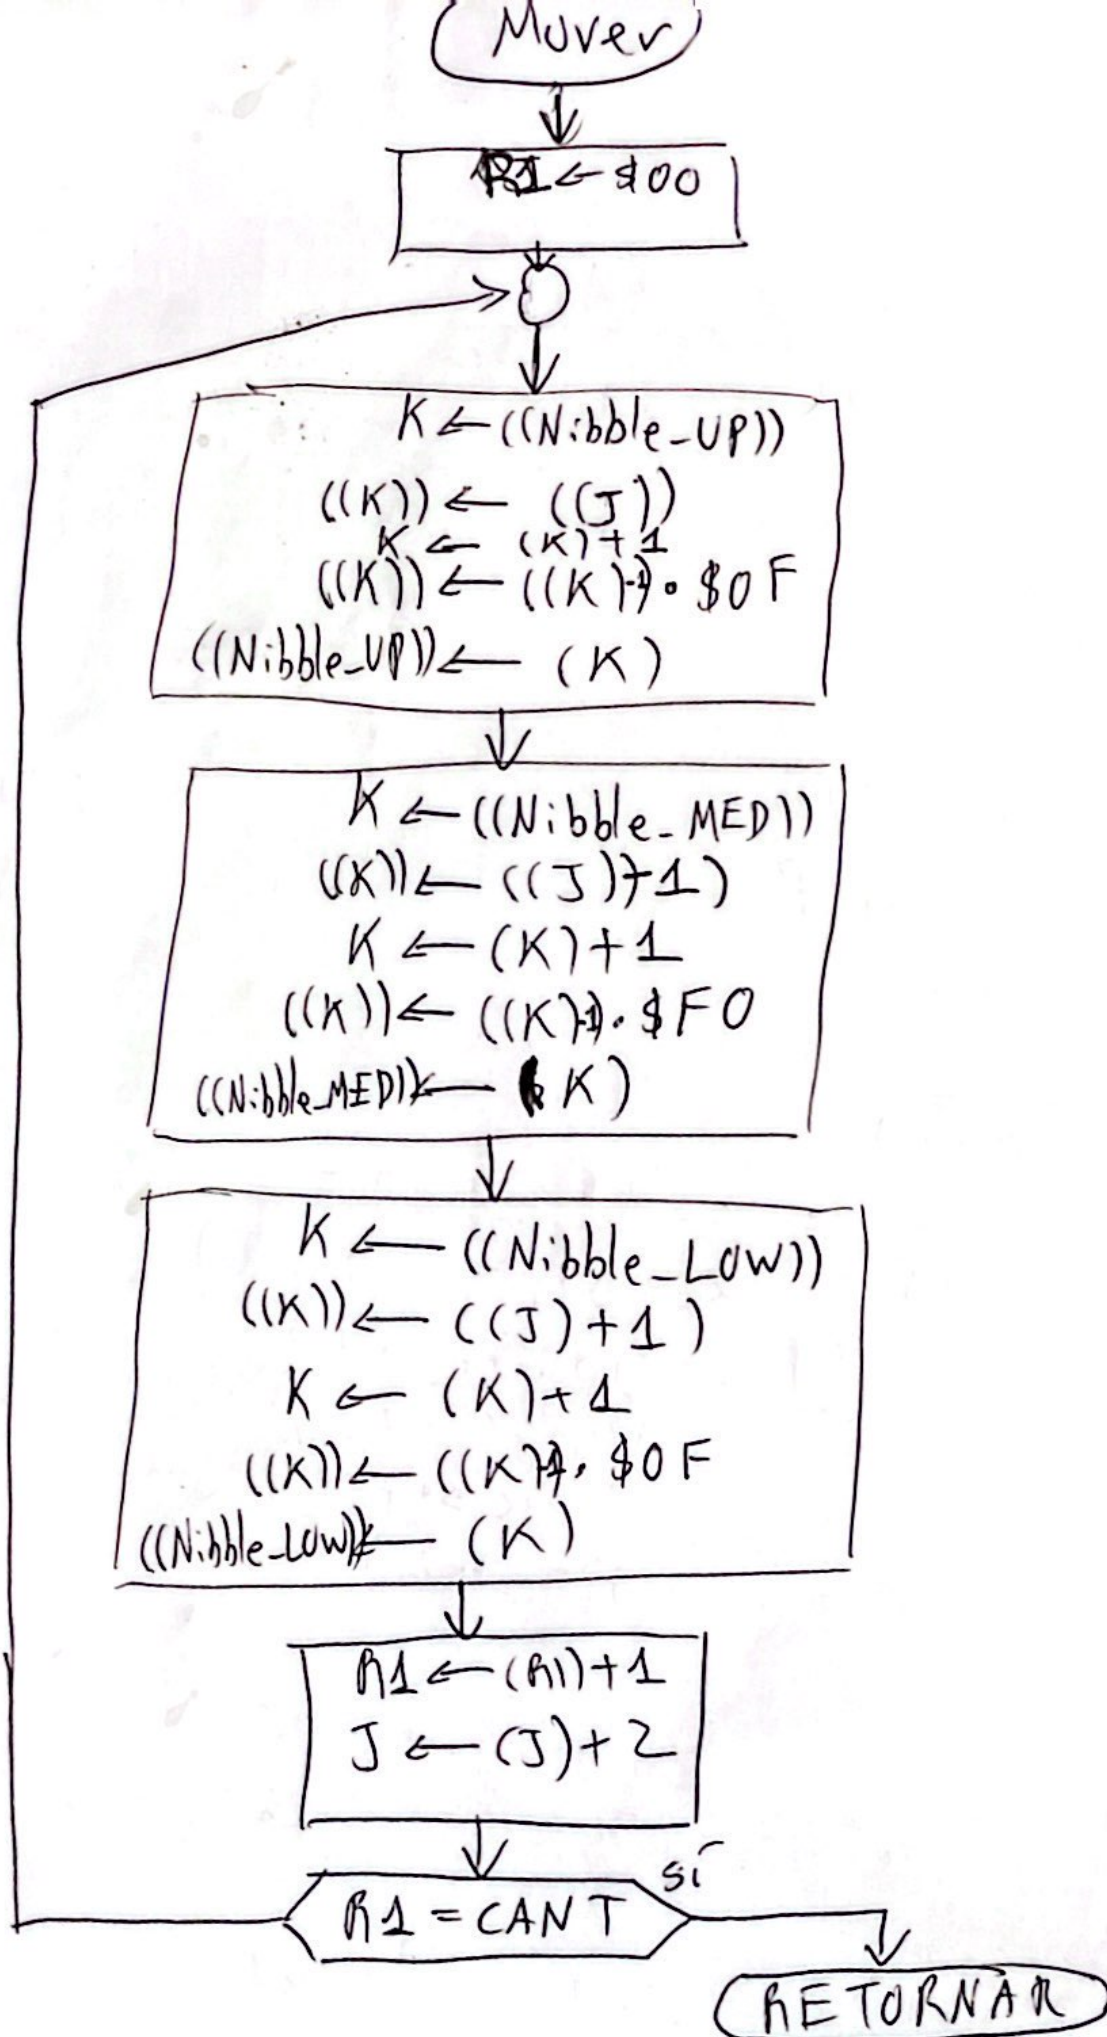 Mover
R1 ← $00
K ← ((Nibble_UP))
((K)) ← ((J))
K ← (K)+1
((K)) ← ((K)-1)•$0F
((Nibble_UP)) ← (K)
K ← ((Nibble_MED))
((K)) ← ((J)+1)
K ← (K)+1
((K)) ← ((K)-1)•$F0
((Nibble_MED)) ← (K)
K ← ((Nibble_LOW))
((K)) ← ((J)+1)
K ← (K)+1
((K)) ← ((K)-1)•$0F
((Nibble_LOW)) ← (K)
R1 ← (R1)+1
J ← (J)+2
sí
R1 = CANT
RETORNAR